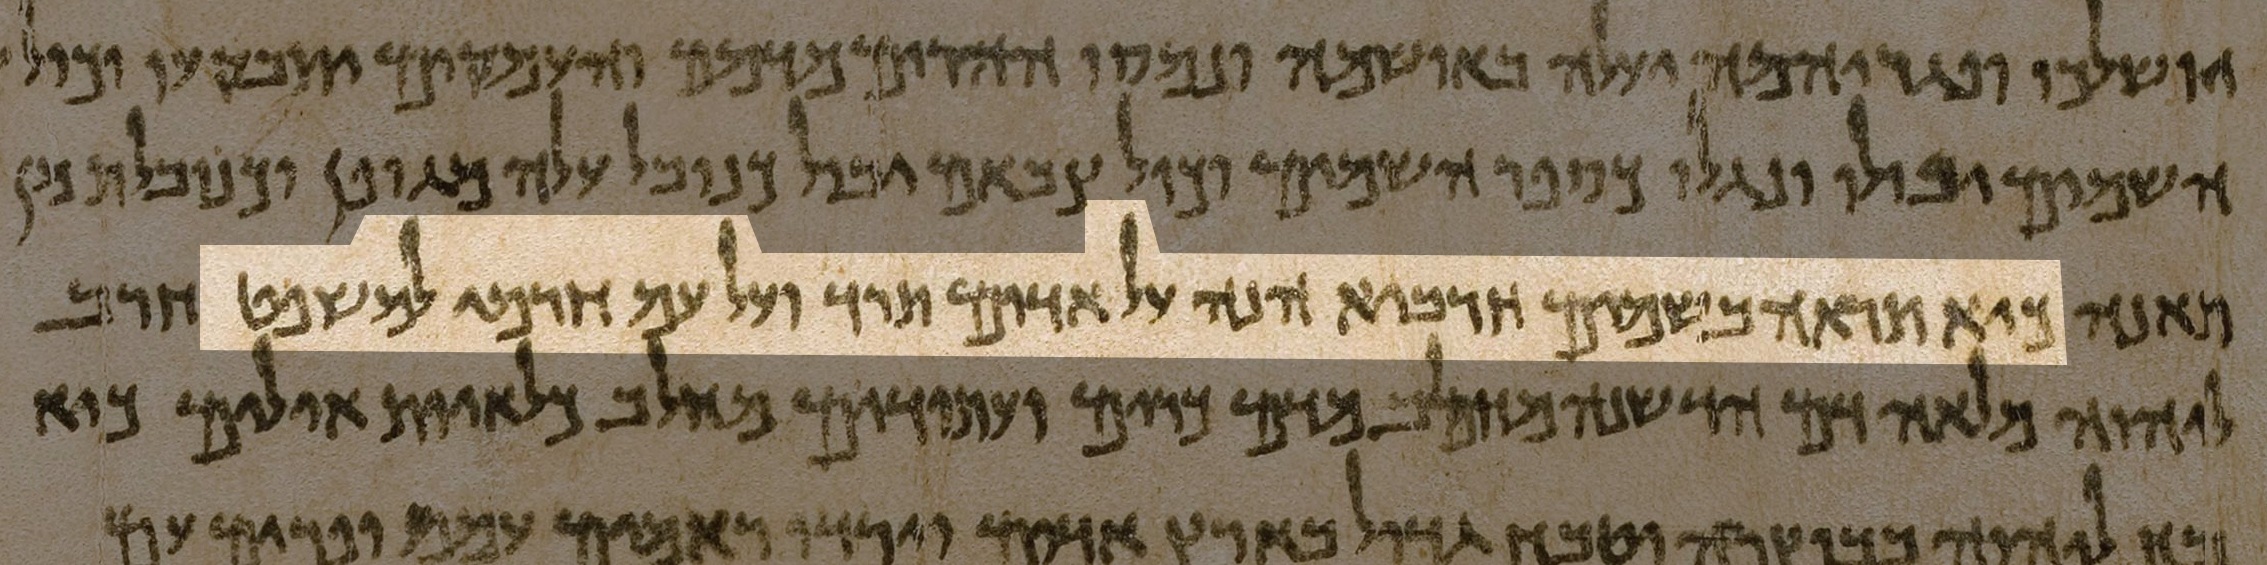 יושלכו ופגריהמה יעלה באושמה ונמסו ההרים מדמם והעמקים יתבקעו וכול
השמים יפולו ונגלו כספר השמים וכול צבאם יבול כנובל עלה מגופן וכנובלת מן
תאנה כיא תראה בשמים חרביא הנה על אדום תרד ועל עם חרמי למשפט חרב
ליהוה מלאה דם הדשנה מחלב מדם כרים ועתודים מחלב כלאיות אילים כיא
זבח ליהוה בבוצרה וטבח גדול בארץ אדום וירדו ראמים עמם ופרים עם